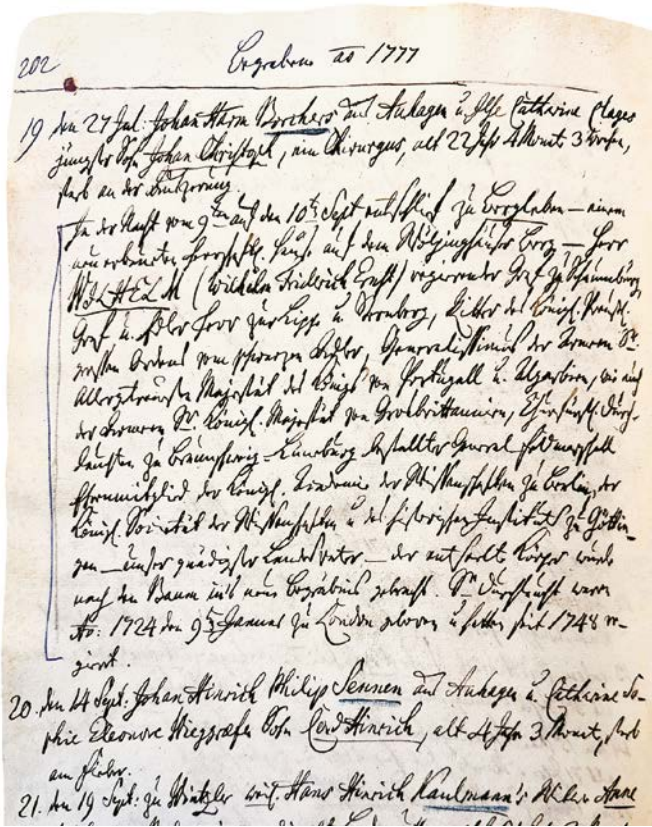 202 Begraben ao 1777
19 den 27 Jul. Johan Harm Borchers aus Auhagen u. Ilse Catharine Clages
jüngster Sohn Johan Christoph, ein Chirurgus, alt 22 Jahr 4 Monat 3 Wochen,
starb an der Auszerung.
In der Nacht vom 9ten auf den 10t Sept entschlief zu Bergleben — einem
neu erbauten herrschaftl. Hause auf dem Wölpinghäuser Berg — Herr
WILHELM (Wilhelm Friedrich Ernst) regierender Graf zu Schaumburg
Graf u. Edler Herr zur Lippe u. Sternberg, Ritter des Königl. Preuß.
großen Ordens vom schwarzen Adler, Generalissimus der Armeen Sr.
Allergetreusten Majestät des Königs von Portugall u. Algarbien, wie auch
der Armeen Sr. Königl. Majestät von Grosbrittannien, Churfürstl. Durch-
lauchten zu Braunschweig-Lüneburg bestallter General Feldmarschall
Ehrenmitglied der Königl. Academie der Wissenschaften zu Berlin, der
Königl. Societät der Wissenschaften u. des historischen Instituts zu Göttin-
gen — unser gnädigster Landesvater — der entseelte Körper wurde
nach den Baum ins neue Begräbnis gebracht. Sr. Durchlaucht waren
Ao: 1724 den 9t Januar zu London geboren u. hatten seit 1748 re-
giert.
20. den 14 Sept. Johan Hinrich Philip Sennen aus Auhagen u. Catherine So-
phie Eleonore Wieggrefen Sohn Cord Hinrich, alt 4 Jahr 3 Monat, starb
am Fieber.
21. den 19 Sept: zu Wintzler weil. Hans Hinrich Kaulmann's Witwe Anne